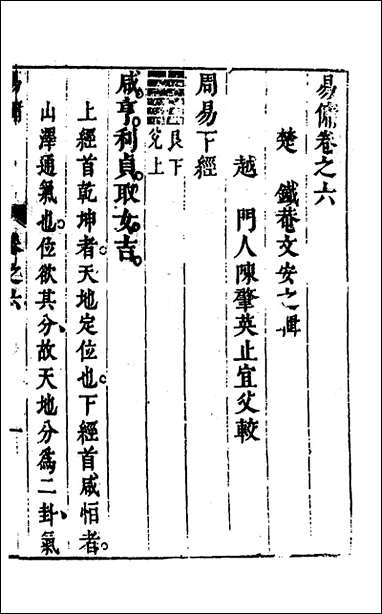 易傭卷之六
楚 鐵菴文安之輯
越 門人陳肇英止宜父較
周易下經
艮下
兌上
咸亨。利貞。取女吉。
上經首乾坤者。天地定位也。下經首咸恒者。
山澤通氣也。位欲其分、故天地分爲二卦、氣
易傭
卷之六
一